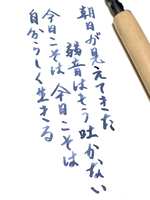 朝日が見えてきた
弱音はもう吐かない
今日こそは 今日こそは
自分らしく生きる